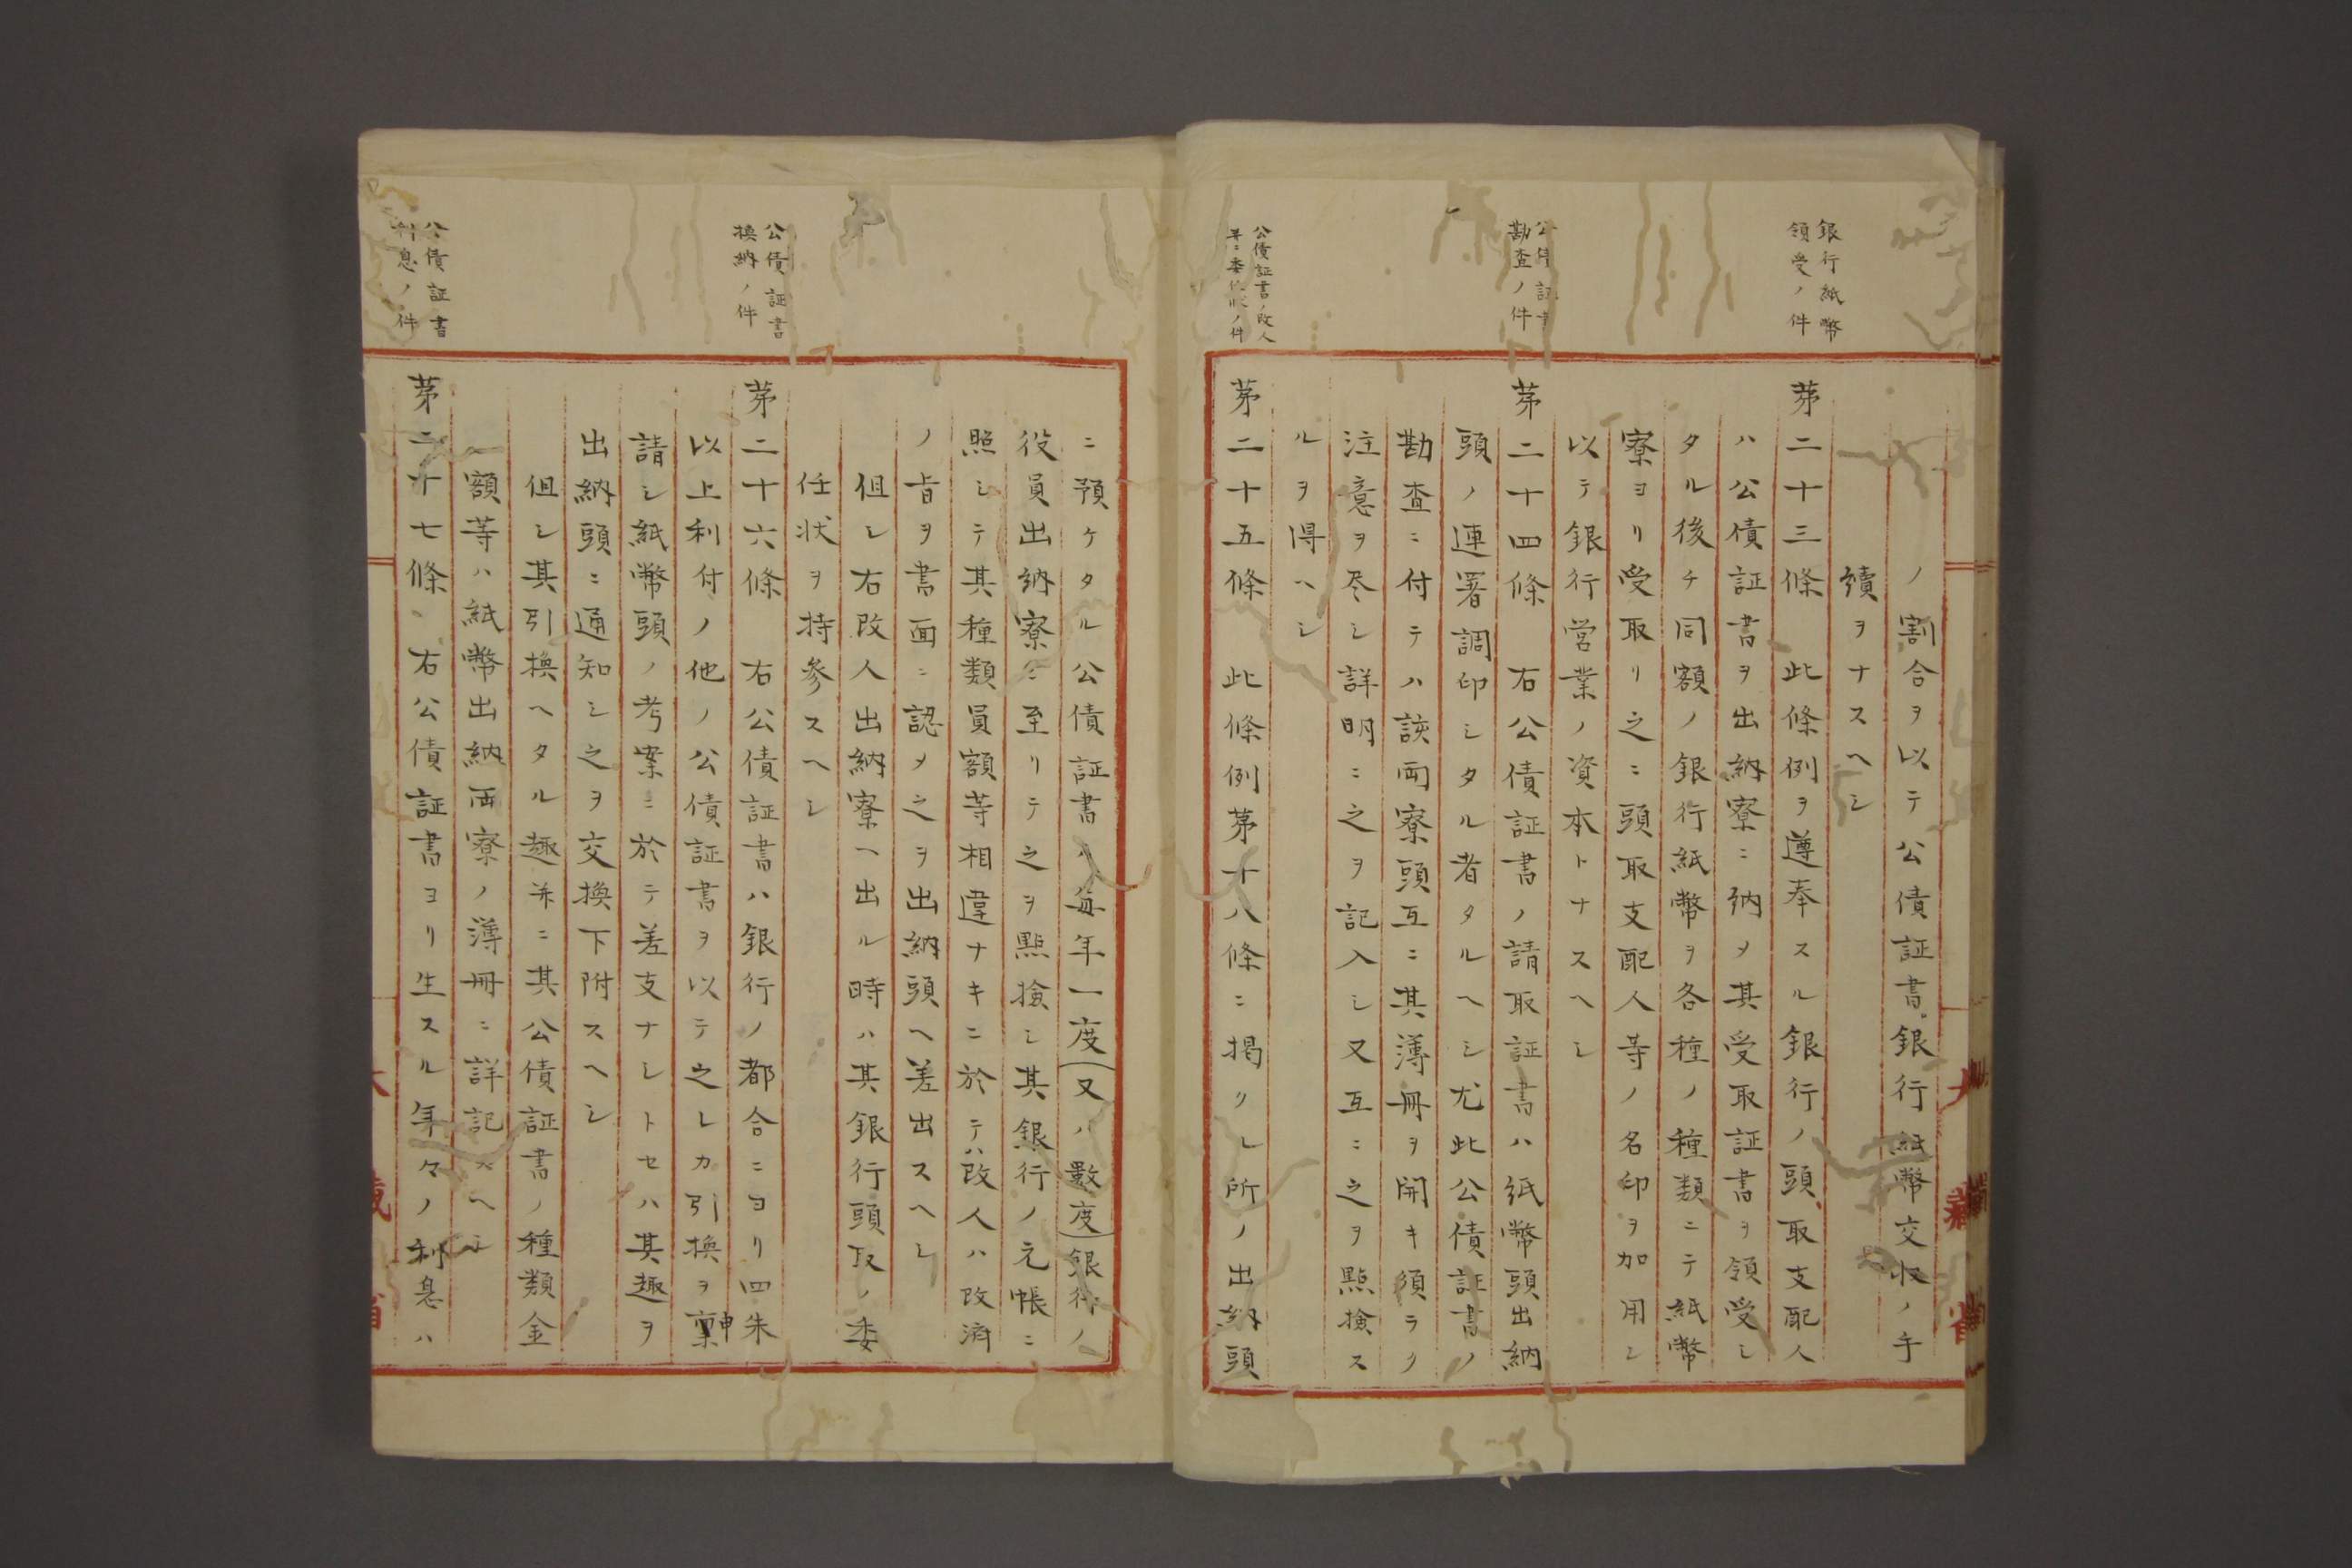 銀行紙幣
領受ノ件
勘査ノ件
公債証書ノ改人
ノ割合ヲ以テ公債証書銀行紙幣交収ノ手
續ヲナスヘシ
苐二十三條 此條例ヲ遵奉スル銀行ノ頭取支配人
ハ公債証書ヲ出納寮ニ納メ其受取証書ヲ領受シ
タル後チ同額ノ銀行紙幣ヲ各種ノ種類ニテ紙幣
寮ヨリ受取リ之ニ頭取支配人等ノ名印ヲ加用シ
以テ銀行営業ノ資本トナスヘシ
苐二十四條 右公債証書ノ請取証書ハ紙幣頭出納
頭ノ連署調印シタル者タルヘシ尤此公債証書ノ
勘査ニ付テハ該両寮頭互ニ其薄冊ヲ開キ須ラク
注意ヲ尽シ詳明ニ之ヲ記入シ又互ニ之ヲ點撿ス
ルヲ得ヘシ
苐二十五條 此條例苐十八條ニ掲クル所ノ出納頭
公債証書
換納ノ件
公債証書
利息ノ件
ニ預ケタル公債証書ハ毎年一度(又ハ數度)銀行ノ
役員出納寮ニ至リテ之ヲ點撿シ其銀行ノ元帳ニ
照シテ其種類員額等相違ナキニ於テハ改人ハ改済
ノ旨ヲ書面ニ認メ之ヲ出納頭ヘ差出スヘシ
但シ右改人出納寮ヘ出ル時ハ其銀行頭取ノ委
任状ヲ持参スヘシ
苐二十六條 右公債証書ハ銀行ノ都合ニヨリ四朱
以上利付ノ他ノ公債証書ヲ以テ之レカ引換ヲ申稟
請シ紙幣頭ノ考案ニ於テ差支ナシトセハ其趣ヲ
出納頭ニ通知シ之ヲ交換下附スヘシ
但シ其引換ヘタル趣并ニ其公債証書ノ種類金
額等ハ紙幣出納両寮ノ薄冊ニ詳記スヘシ
苐二十七條 右公債証書ヨリ生スル年々ノ利息ハ
大藏省